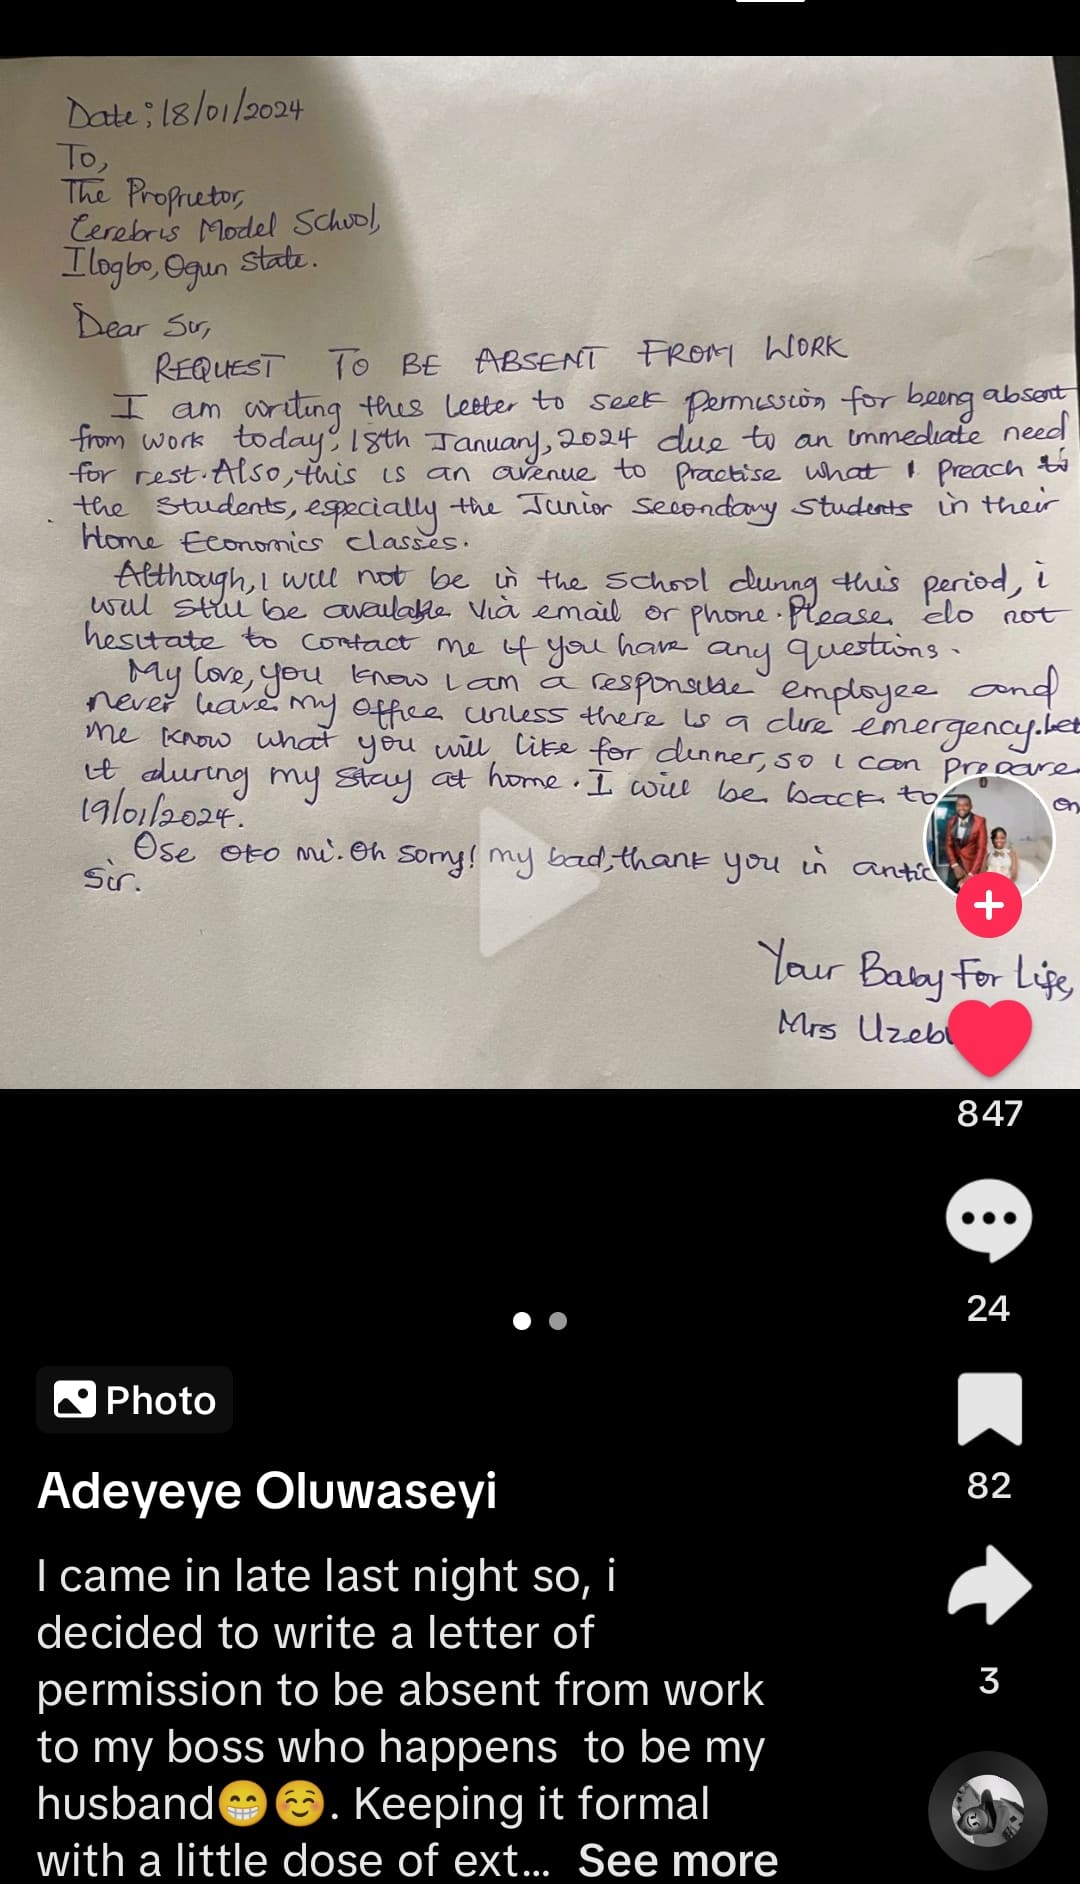 Date; 18/01/2024
To,
The Proprietor,
Cerebris Model School,
Ilogbo, Ogun State.
Dear Sir,
REQUEST TO BE ABSENT FROM WORK
I am writing this letter to seek permission for being absent
from work today, 18th January, 2024 due to an immediate need
for rest. Also, this is an avenue to practise what I preach to
the students, especially the Junior Secondary students in their
Home Economics classes.
Although, I will not be in the school during this period, i
will still be available via email or phone. Please do not
hesitate to contact me if you have any questions.
My love, you know I am a responsible employee and
never leave my office unless there is a dire emergency. Let
me know what you will like for dinner, so i can prepare
it during my stay at home. I will be back to on
19/01/2024.
Ose oko mi. Oh sorry! my bad, thank you in antic
Sir.
Your Baby For Life,
Mrs Uzeb
847
24
Photo
82
Adeyeye Oluwaseyi
I came in late last night so, i
decided to write a letter of
permission to be absent from work
3
to my boss who happens to be my
husband😁☺️. Keeping it formal
with a little dose of ext... See more